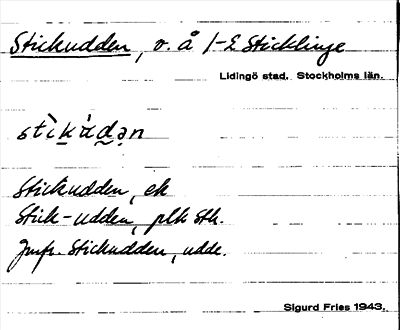 Stickudden, v. å 1-E Sticklinge
Lidingö stad. Stockholms län.
stìkùdən
Stickudden, ek
Stick-udden, plk Sth.
Jmfr. Stickudden, udde.
Sigurd Fries 1943.